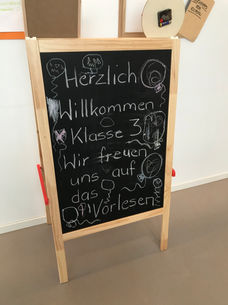 Herzlich
Willkommen
Klasse 3
Wir freuen
uns auf
das
Vorlesen!